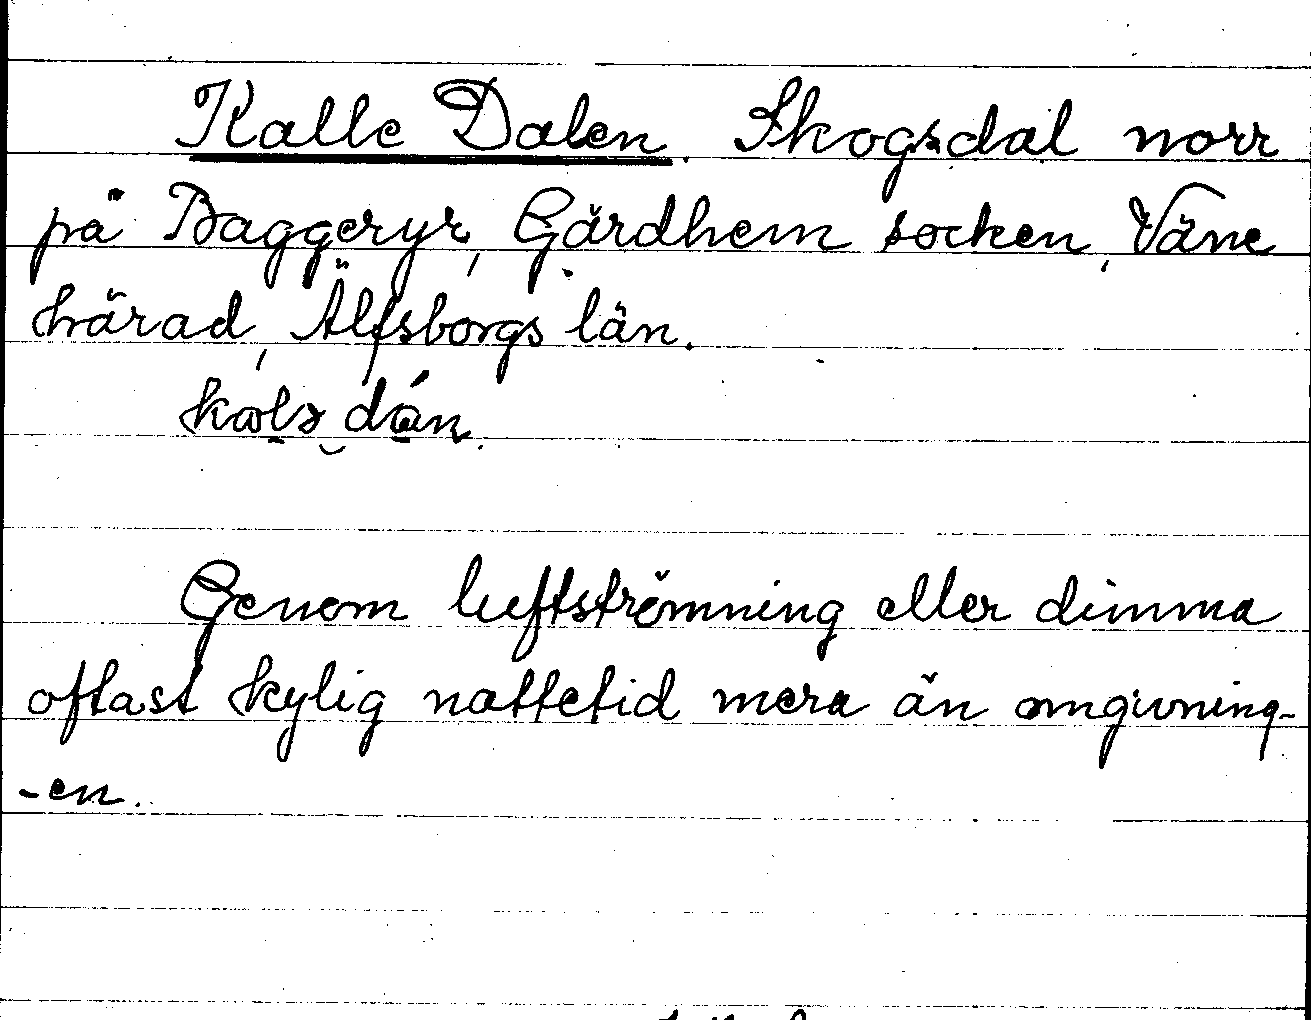 Kalle Dalen. Skogsdal norr
på Baggeryr, Gärdhem socken, Väne
härad, Älfsborgs län.
Genom luftströmning eller dimma
oftast kylig nattetid mera än omgivning-
-en.